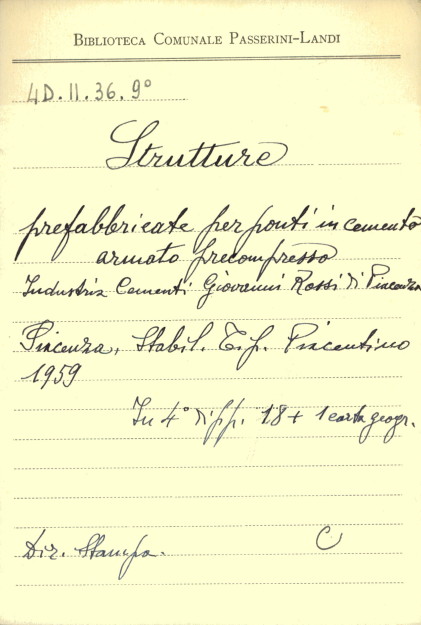 BIBLIOTECA COMUNALE PASSERINI-LANDI
4D.II.36.9°
Strutture
prefabbricate per ponti in cemento
armato precompresso
Industria Cementi Giovanni Rossi di Piacenza
Piacenza, Stabil. Tip. Piacentino
1959
In 4° di pp. 18 + 1 carta geogr.
Dir. Stampa. C